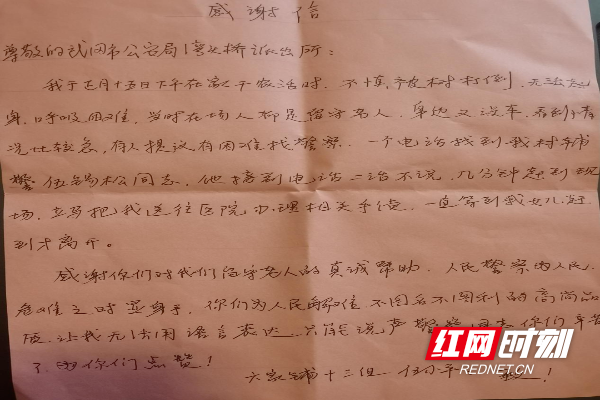 感谢信
尊敬的武冈市公安局湾头桥派出所：
我于正月十五日下午在家干农活时，不慎被树木打倒，无法起
身，呼吸困难，当时在场人都是留守老人，身边又没车，看到情
况比较急，有人提议有困难找警察，一个电话找到我村辅
警伍锡松同志，他接到电话二话不说，几分钟赶到现
场，立马把我送往医院办理相关手续，一直等到我女儿赶
到才离开。
感谢你们对我们留守老人的真诚帮助，人民警察为人民，
危难之时显身手，你们为人民解难不图名不图利的高尚品
质，让我无法用语言表达，只能说声警察同志你们辛苦
了，为你们点赞！
六家铺十三组
红网时刻
REDNET.CN